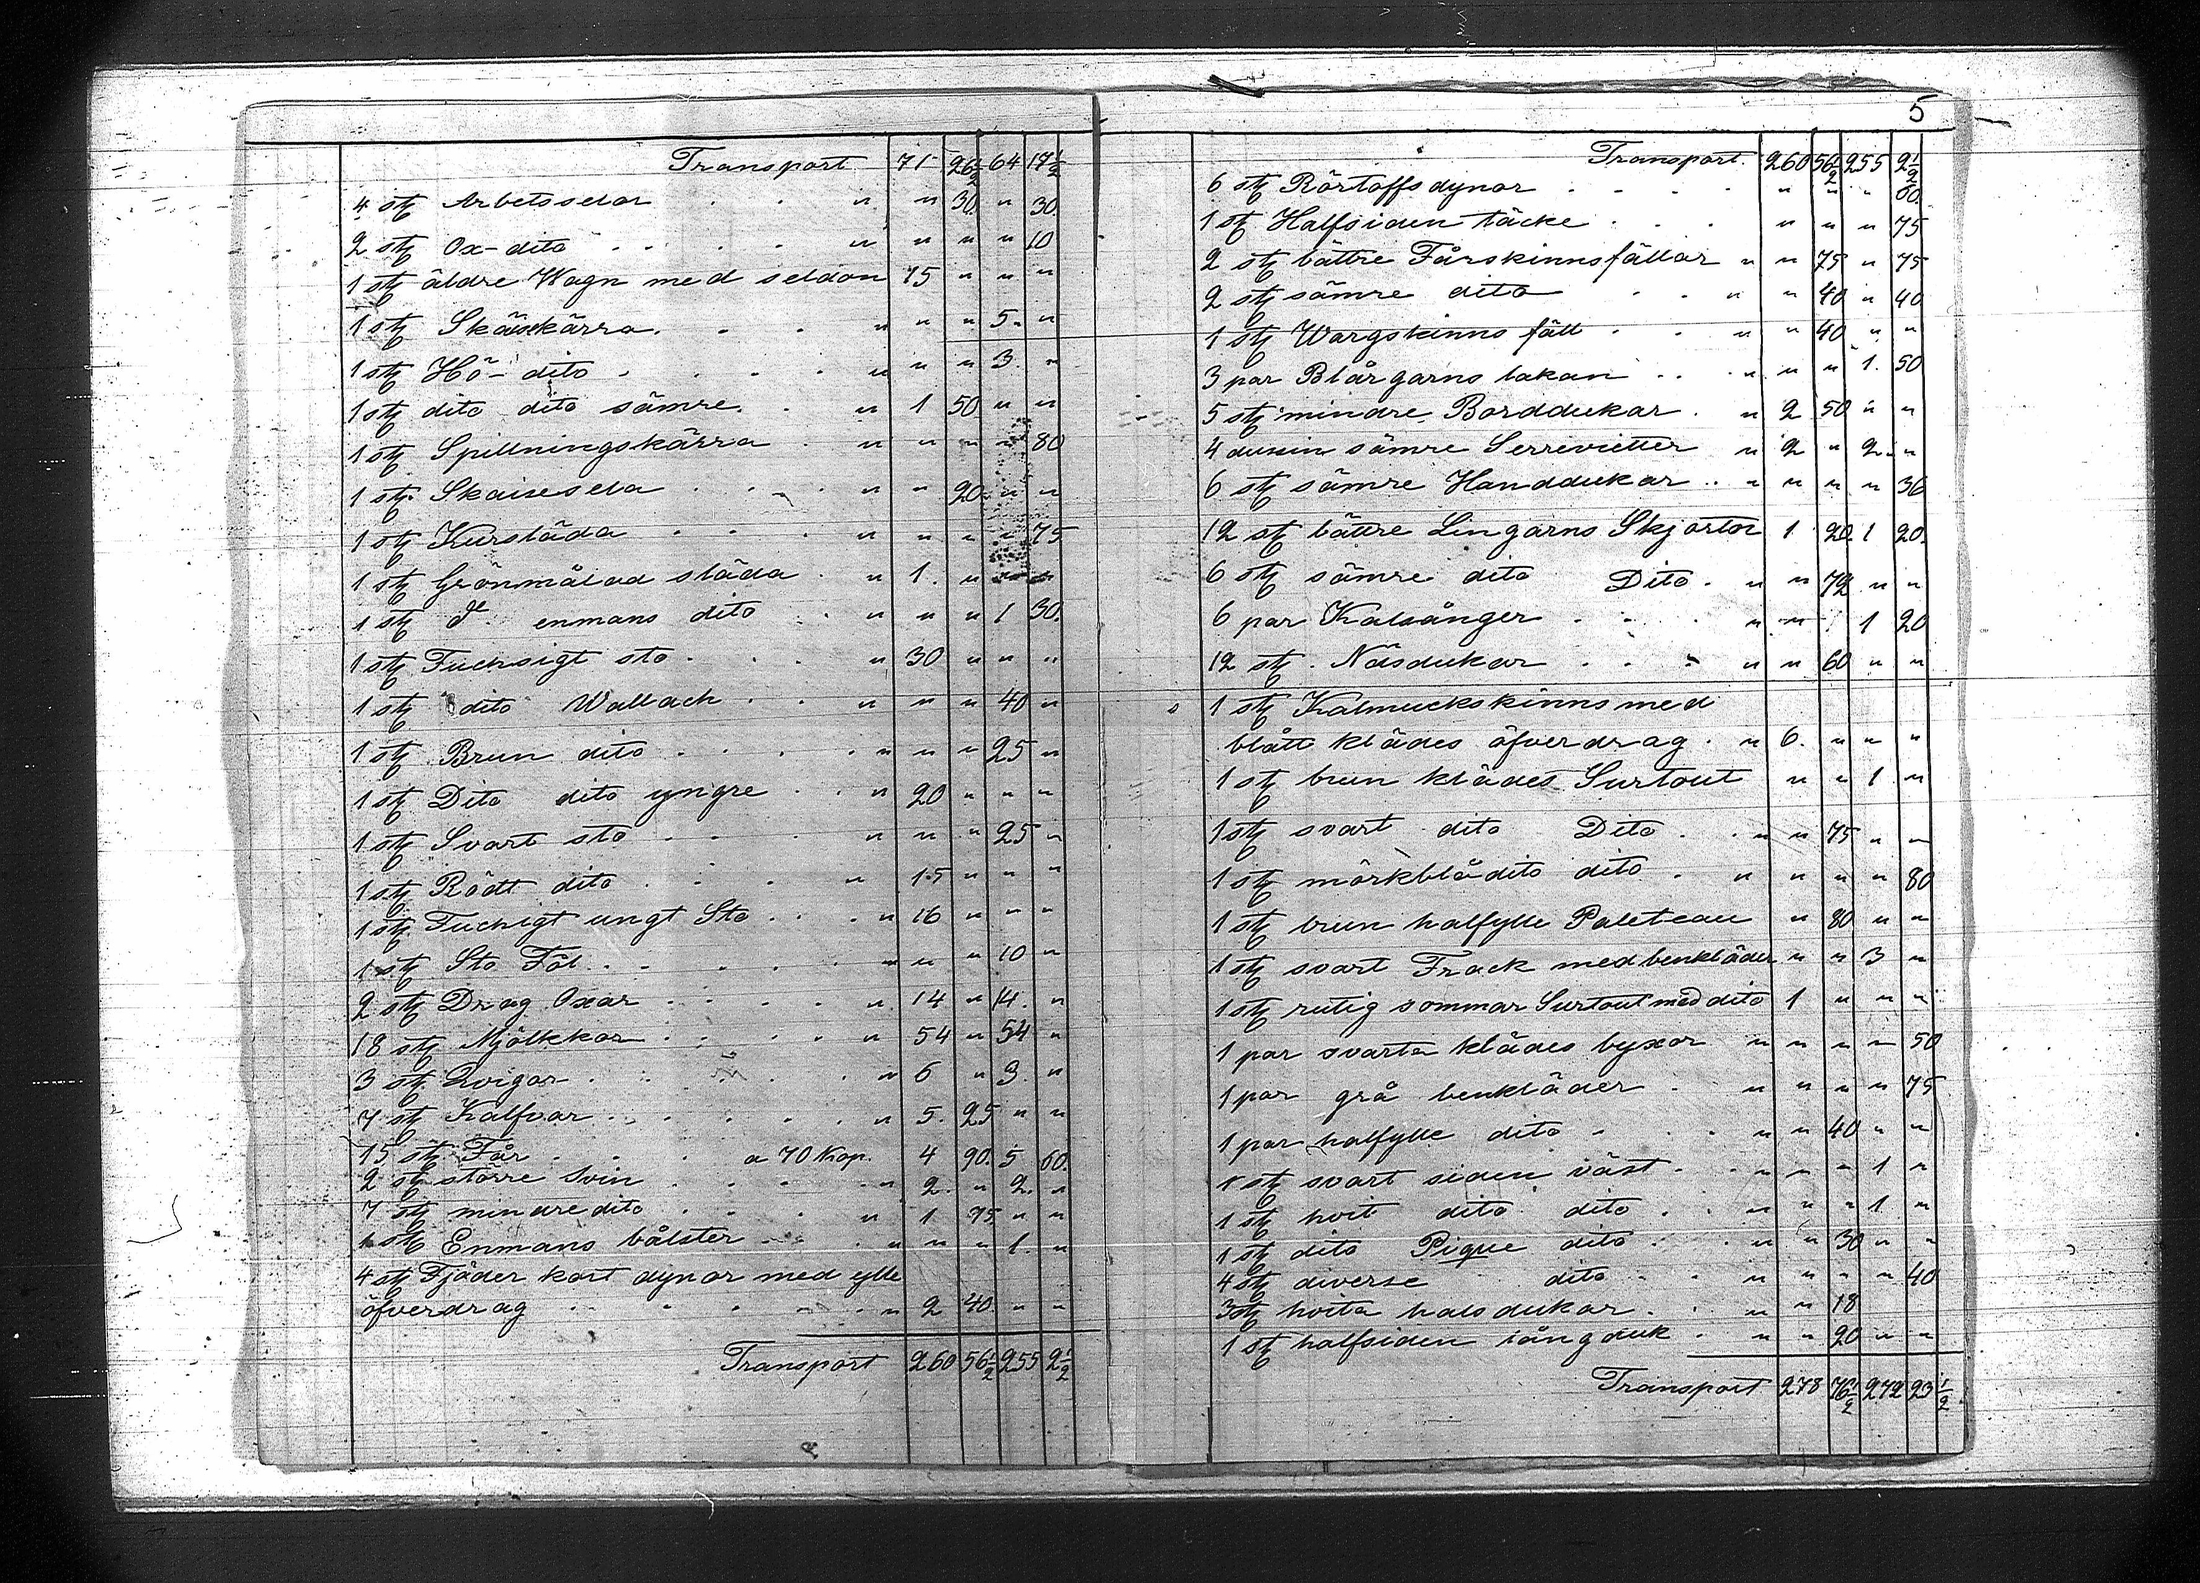 Transport 71 26½ 64 17½
4 stg Arbetsselar . . " " 30. " 30.
2 stg Ox-dito . . . . " " " " 10
1 stg äldre Wagn med seldon 15 " " "
1 stg Skäiskärra . . . " " " 5. "
1 stg Hö- dito . . . . " " " 3. "
1 stg dito dito sämre. . " 1 50 " "
1 stg Spillningskärra . " " " " 80
1 stg Skaisesela . . . . " " 20. " "
1 stg Kursläda . . . . " " " " 75
1 stg Grönmålad släda . " 1. " " "
1 stg do enmans dito . " " " 1 30.
1 stg Fuchsigt sto . . . " 30 " " "
1 stg dito Wallach . . " " " 40 "
1 stg Brun dito . . . . " " " 25 "
1 stg Dito dito yngre . . " 20 " " "
1 stg Svart sto . . . " " " 25 "
1 stg Rödt dito . . . . " 15 " " "
1 stg Fuchigt ungt Sto . . . " 16 " " "
1 stg Sto Föl . . . . . " " " 10 "
2 stg Drag Oxar . . . . " 14 " 14. "
18 stg Mjölkkor . . . . " 54 " 54 "
3 stg Qvigor . . . . . " 6 " 3. "
7 stg Kalfvar . . . . . " 5. 25 " "
15 stg Får . . . a 70 Kop. 4 90. 5 60.
2 stg större Svin . . . . " 2. " 2. "
7 stg mindre dito . . . " 1 75 " "
1 stg Enmans bålster . . . " " " 1. "
4 stg Fjäder kort dynor med ylle
öfverdrag . . . . . " 2 40. " "
Transport 260 56½ 255 2½
5
Transport. 260 56½ 255 2½
6 stg Rörtoffsdynor . . . . " " " 60.
1 stg Halfsiden täcke . . . " " " 75
2 stg bättre Fårskinnsfällar " " 75 " 75
2 stg sämre dito . . " " 40 " 40
1 stg Wargskinns fäll . . " " 40 " "
3 par Blårgarns lakan . . . " " " 1. 50
5 stg mindre Borddukar . " 2 50 " "
4 dussin sämre Servietter " 2 " 2. "
6 stg sämre Handdukar . . " " " " 36
12 stg bättre Lingarns Skjortor 1 20. 1 20.
6 stg sämre dito Dito. " " 72 " "
6 par Kalsånger . . . " " . 1 20
12 stg. Näsdukar . . . " " 60 " "
1 stg Kalmuckskinns med
blått klädes öfverdrag . " 6. " " "
1 stg brun klädes Surtout " " 1 "
1 stg svart dito Dito . . " " 75 " "
1 stg mörkblå dito dito . " " " " 80
1 stg brun halfylle Paleteau " 80 " "
1 stg svart Frack med benkläder " " 3 "
1 stg rutig sommar Surtout med dito 1 " " "
1 par svarta klädes byxor " " " " 50
1 par grå benkläder . " " " " 75
1 par halfylle dito . . . " " 40 " "
1 stg svart siden väst . . " " " 1 "
1 stg hvit dito dito . . " " " 1 "
1 stg dito Pique dito . . " " 30 " "
4 stg diverse dito . . " " " " 40
3 stg hvita halsdukar . . " " 18
1 stg halfsiden lång duk . " " 20 " "
Transport 278 76½ 272 23½